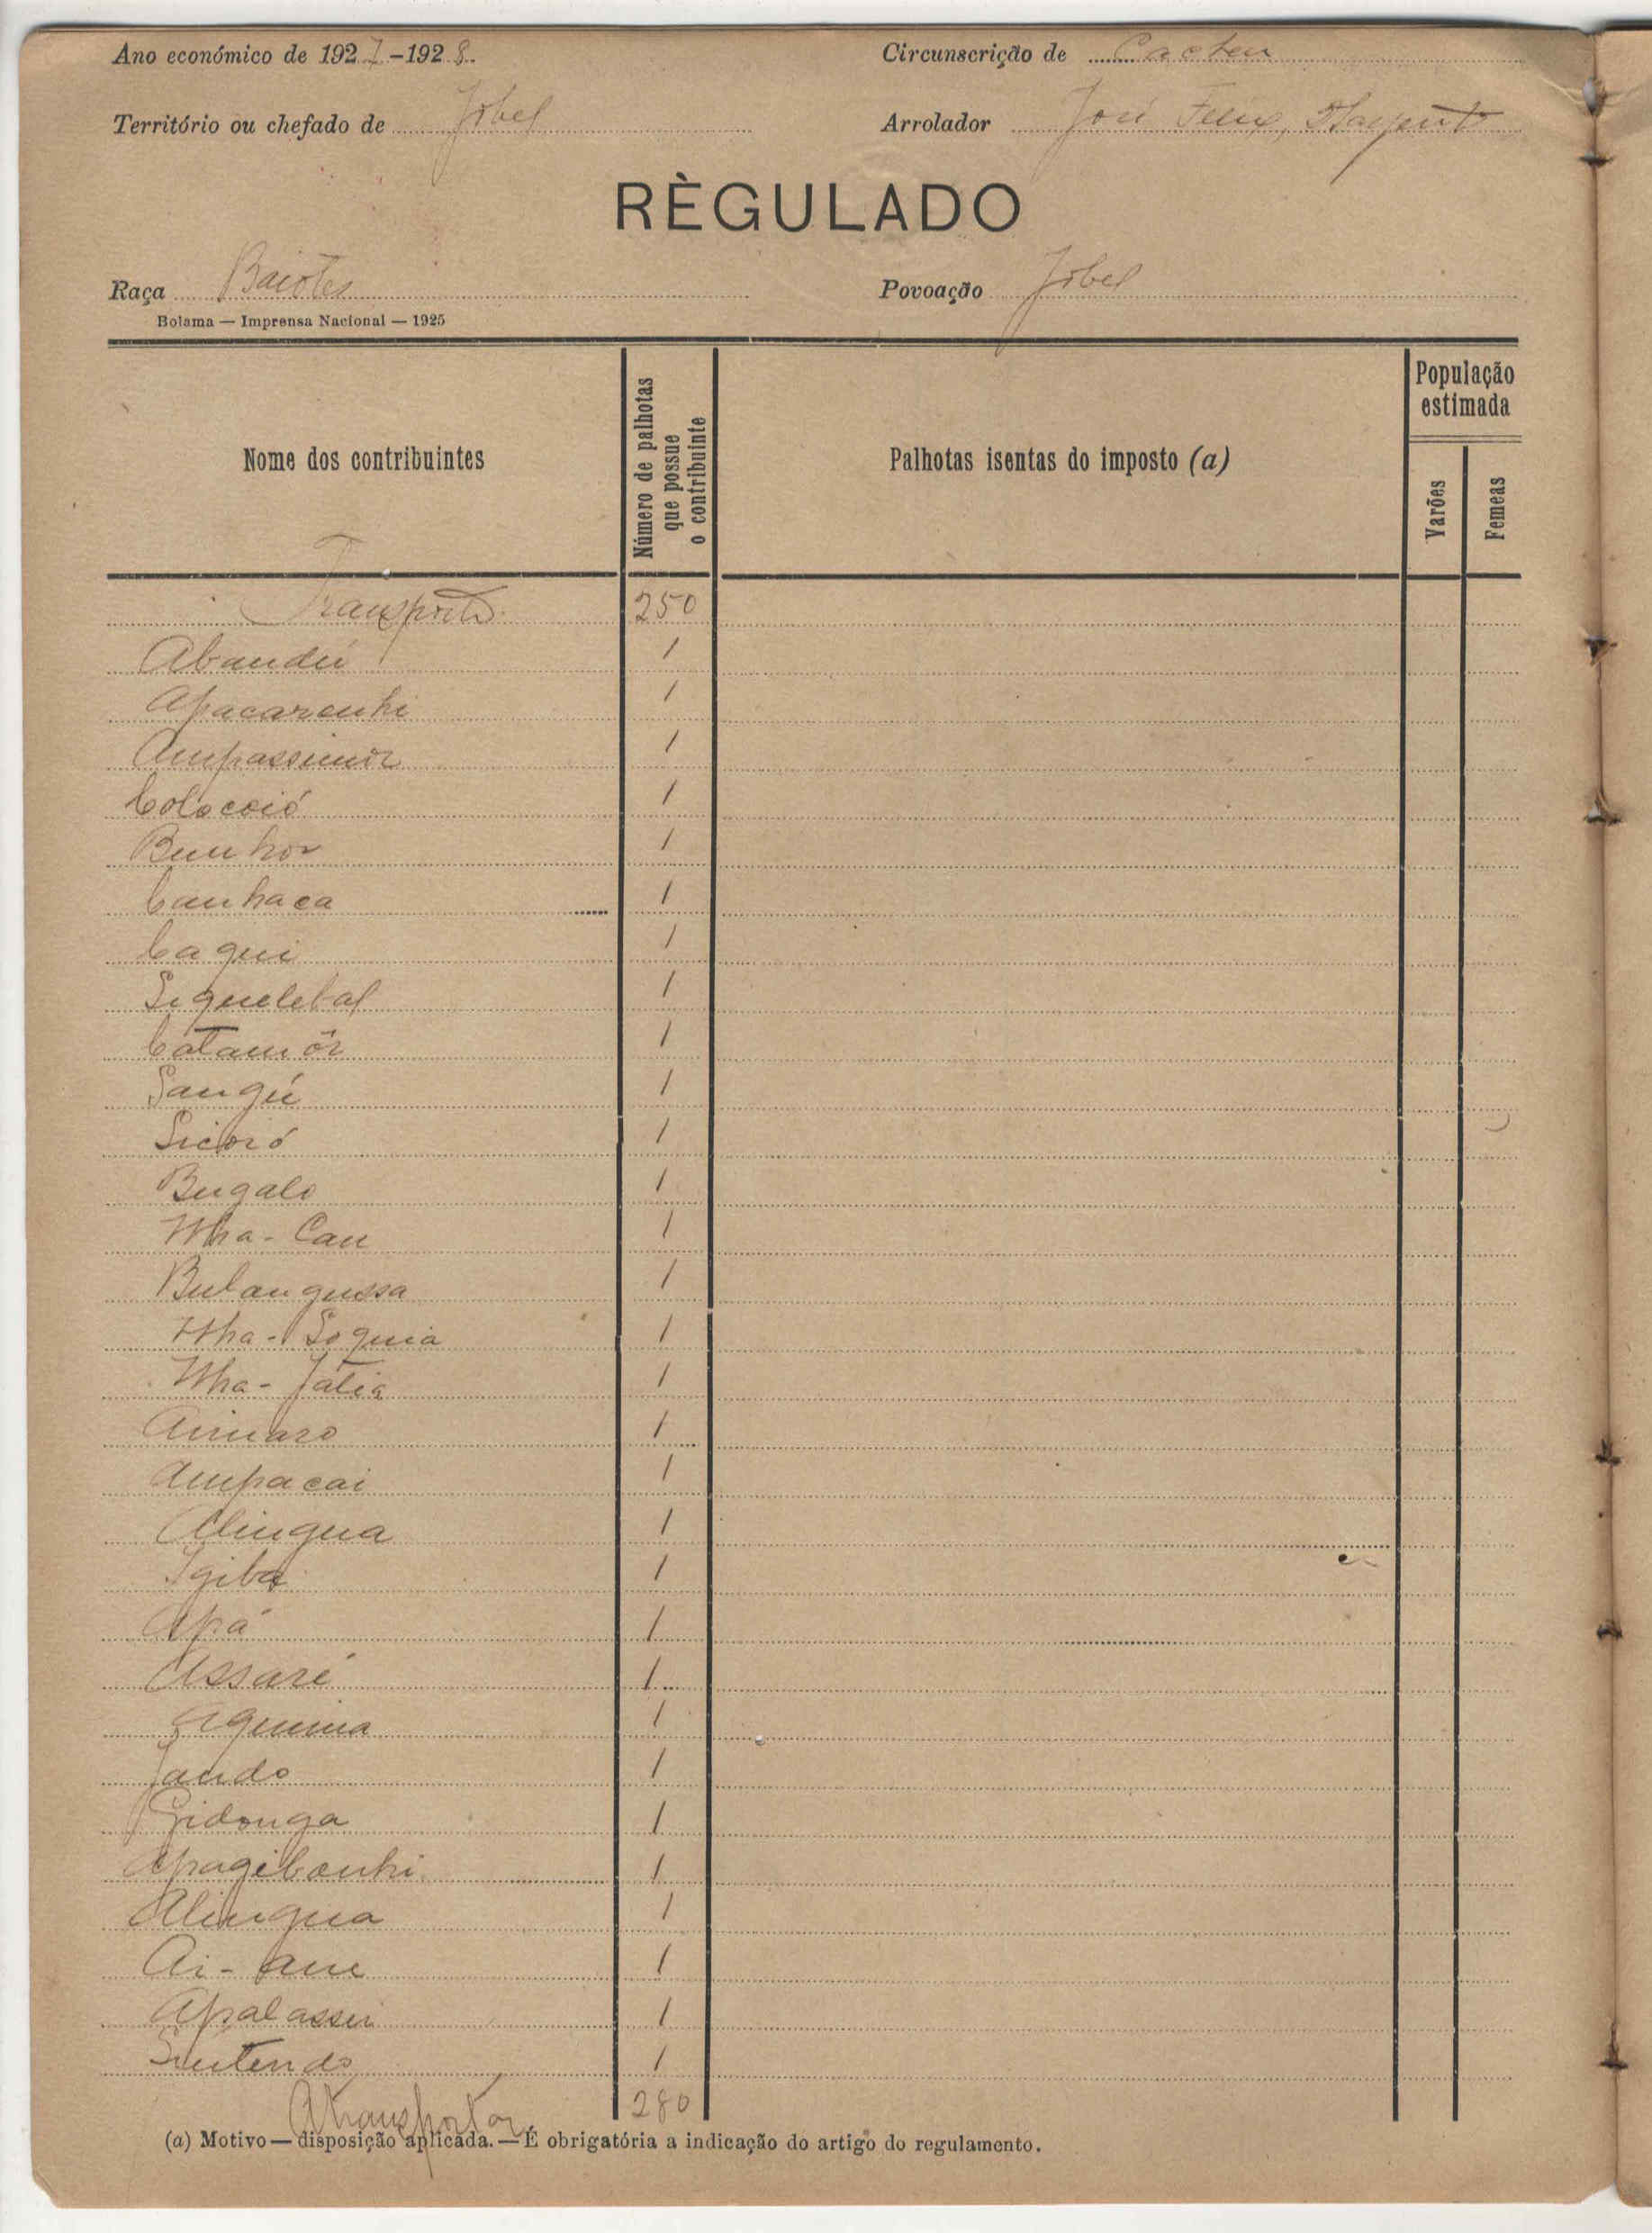 Ano económico de 1927-1928.
Circunscrição de Cacheu
Território ou chefado de Jobel
Arrolador José Felix, Sargento
RÈGULADO
Raça Baiotes
Povoação Jobel
Bolama — Imprensa Nacional — 1925
Nome dos contribuintes
Número de palhotas que possue o contribuinte
Palhotas isentas do imposto (a)
População estimada
Varões
Femeas
Transporte 250
Abandú 1
Apacarenhi 1
Ampassimór 1
Colocoió 1
Bunhor 1
Canhaca 1
Caqui 1
Siquelebal 1
Catamôr 1
Sangú 1
Sicoró 1
Bugalo 1
Nha-Cau 1
Bulangussa 1
Nha-Soquia 1
Nha-Játia 1
Animaro 1
Ampacai 1
Alingua 1
Igiba 1
Apá 1
Assaré 1
1
Jando 1
Gidonga 1
Apagibanhi 1
Alingua 1
Ai-Ane 1
Apalassei 1
1
A transportar 280
(a) Motivo — disposição aplicada. — É obrigatória a indicação do artigo do regulamento.